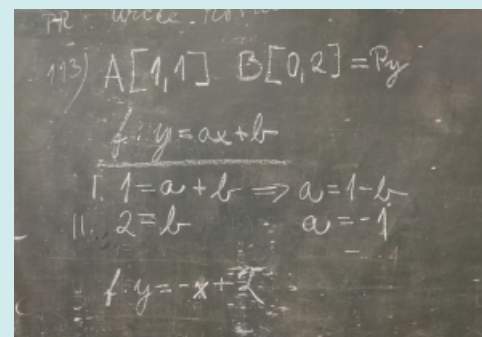 113) A[1,1] B[0,2]=Py
f: y=ax+b
I. 1=a+b ⇒ a=1-b
II. 2=b a=-1
f: y=-x+2